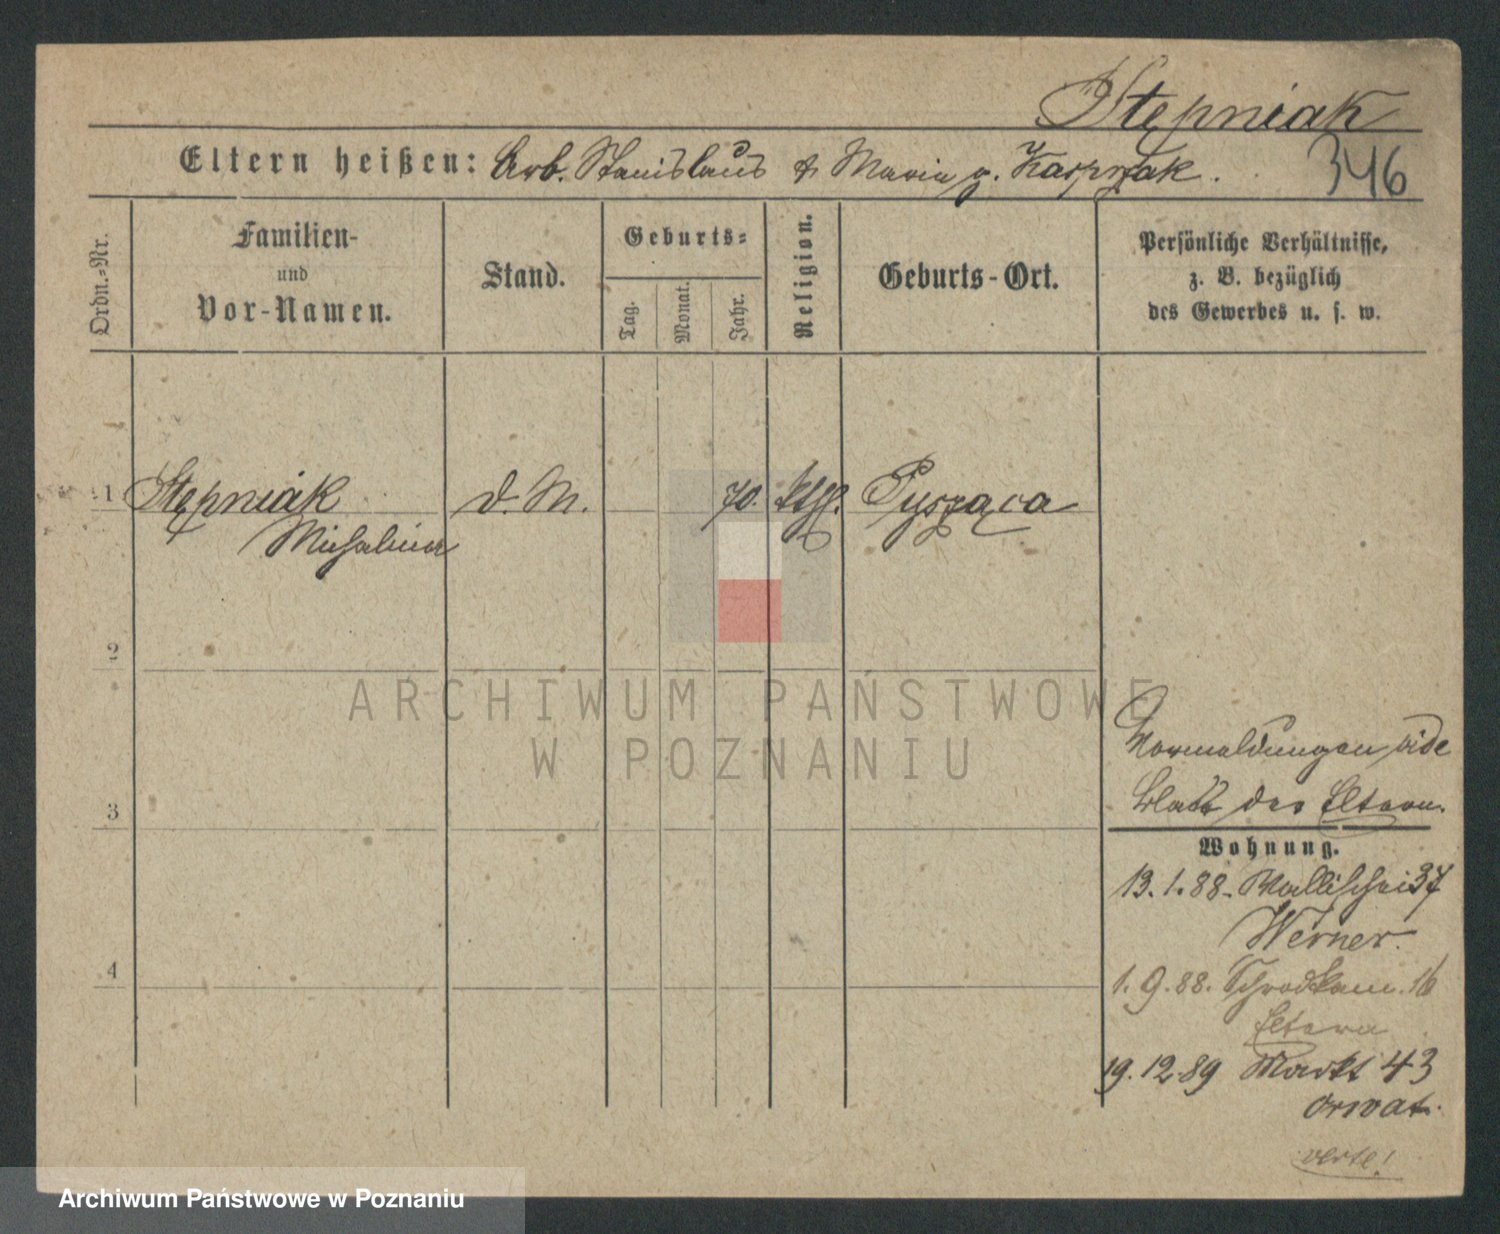 Stępniak
Eltern heißen: Arb. Stanislaus & Maria g. Kasprzak.
346
Ordn.-Nr.
Familien-
und
Vor-Namen.
Stand.
Geburts-
Tag.
Monat.
Jahr.
Religion.
Geburts-Ort.
Persönliche Verhältnisse,
z. B. bezüglich
des Gewerbes u. s. w.
1 Stępniak d. M. 70. kthl. Pysząca
Michalina
2
ARCHIWUM PAŃSTWOWE
W POZNANIU
Vormeldungen vide
Blatt der Eltern.
3
Wohnung.
13.1.88. Wallischei 37
Werner.
4
1.9.88. Schrodkam. 16
Eltern
19.12.89 Markt 43
Orwat.
verte!
Archiwum Państwowe w Poznaniu